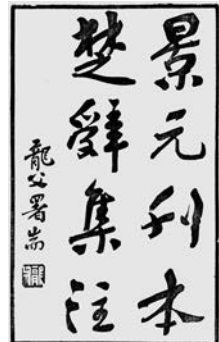 景元刊本
楚辞集注
龍父署耑